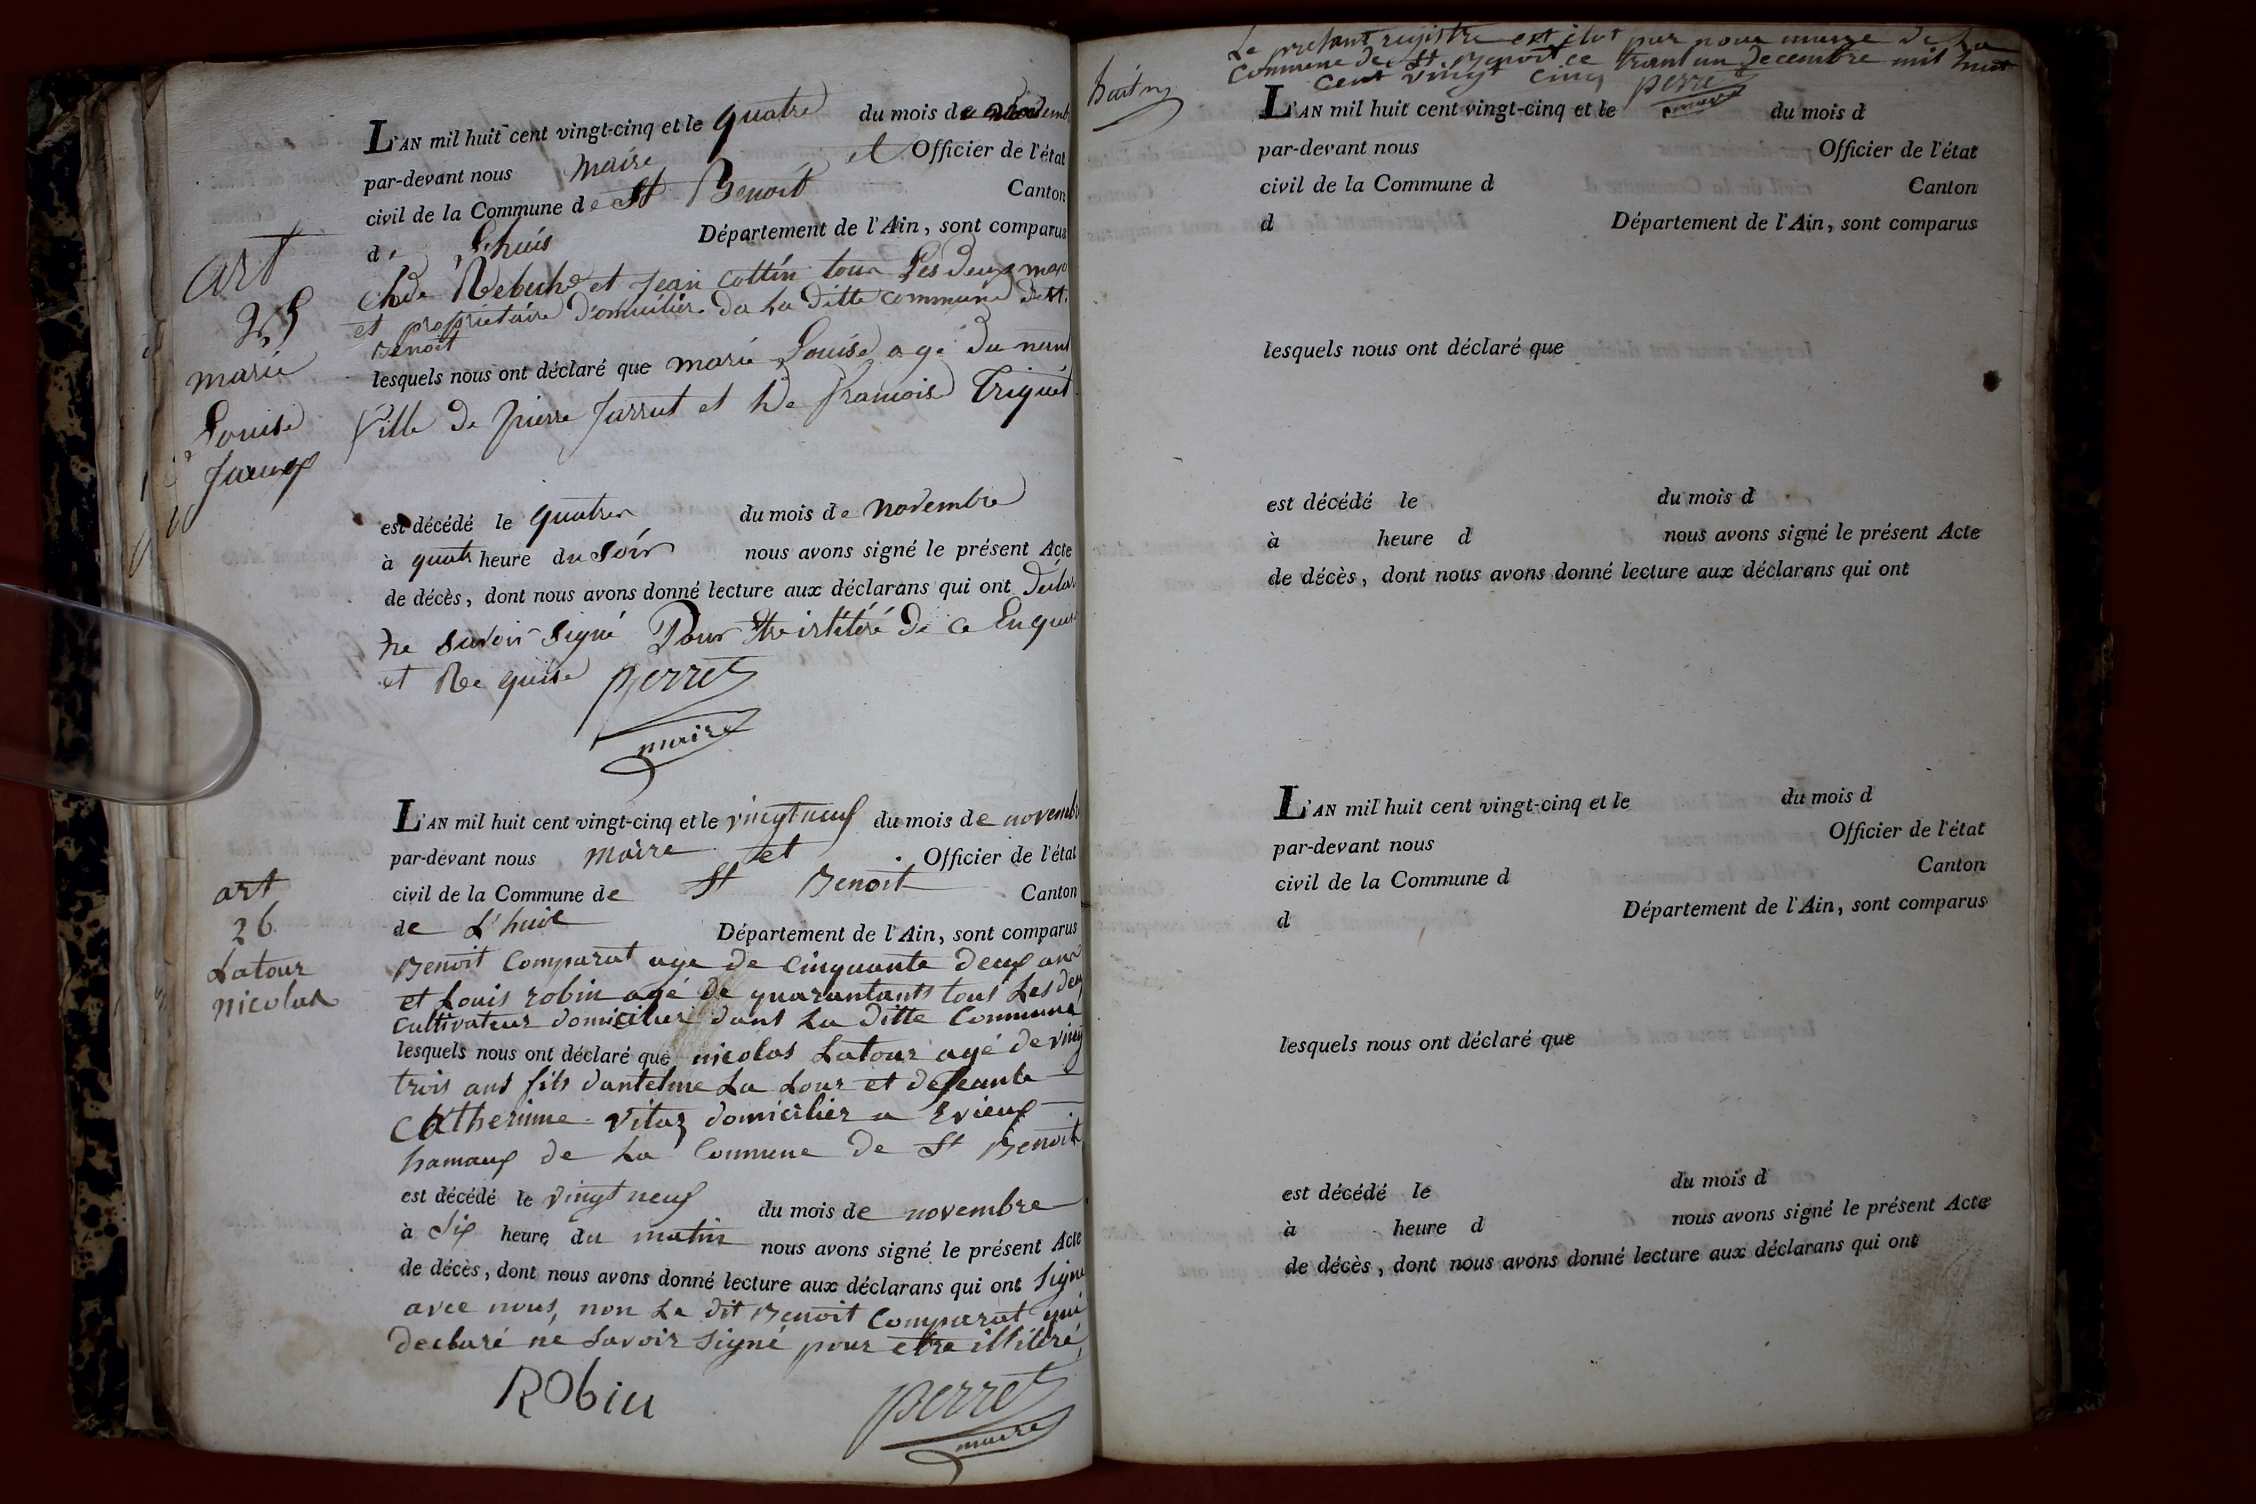 L'AN mil huit cent vingt-cinq et le quatre du mois de novemb
par-devant nous maire et Officier de l'état
civil de la Commune de St Benoit Canton
de Lhuis Département de l'Ain, sont comparus
et Jean Cottin tous Les deux
et propriétaire domicilier da La ditte commune de St.
Benoit
lesquels nous ont déclaré que marie Louise agé du
fille de pierre Jarrut et De francoise Triquet
art
25
marie
Louise
est décédé le quatre du mois de novembre
à quatr heure du Soir nous avons signé le présent Acte
de décès, dont nous avons donné lecture aux déclarans qui ont
ne savoir signé Pour de ce Enquis
et Re quise perret
maire
L'AN mil huit cent vingt-cinq et le vingt neuf du mois de novemb
par-devant nous maire et Officier de l'état
civil de la Commune de St Benoit Canton
de L'huis Département de l'Ain, sont comparus
Benoit Comparat age de cinquante deux ans
et Louis robin agé de quarantants tous Les deux
Cultivateur domicilier dans La ditte Commune
lesquels nous ont déclaré que nicolas Latour agé de ving
trois ans fils dantelme La tour et de Jeanne
Catherinne vitoz domicilier a Evieux
hamaux de La Commune de St Benoit
art
26
Latour
nicolas
est décédé le vingt neuf du mois de novembre
à six heure du matin nous avons signé le présent Acte
de décès, dont nous avons donné lecture aux déclarans qui ont signé
avec nous, non Le dit Benoit Comparat qui
declaré ne savoir signé pour etre illiteré
Robin perret
maire
Le present registre est clot par nous maire de La
Commune de St Benoit ce trant un decembre mil huit
cent vingt cinq perret
maire
L'AN mil huit cent vingt-cinq et le du mois d
par-devant nous Officier de l'état
civil de la Commune d Canton
d Département de l'Ain, sont comparus
lesquels nous ont déclaré que
est décédé le du mois d
à heure d nous avons signé le présent Acte
de décès, dont nous avons donné lecture aux déclarans qui ont
L'AN mil huit cent vingt-cinq et le du mois d
par-devant nous Officier de l'état
civil de la Commune d Canton
d Département de l'Ain, sont comparus
lesquels nous ont déclaré que
est décédé le du mois d
à heure d nous avons signé le présent Acte
de décès, dont nous avons donné lecture aux déclarans qui ont